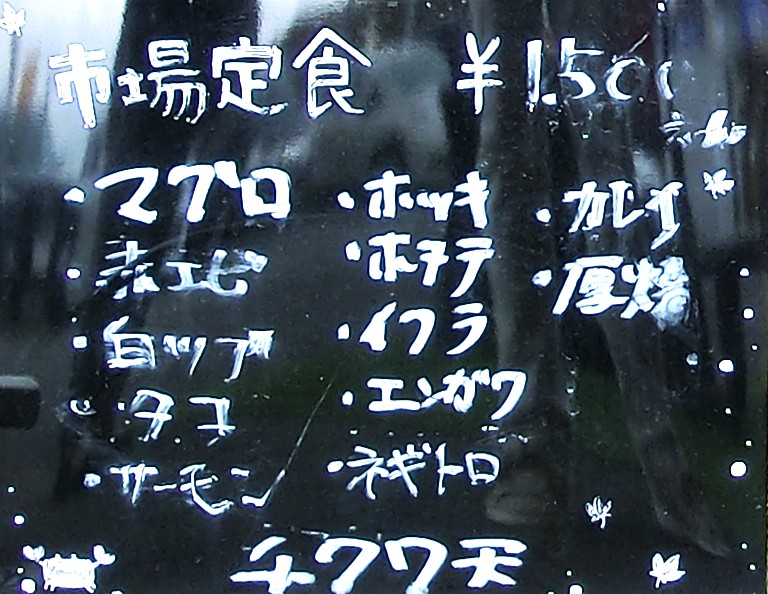 市場定食 ¥1.500
・マグロ
・赤エビ
・白ツブ
・タコ
・サーモン
・ホッキ
・ホタテ
・イクラ
・エンガワ
・ネギトロ
・カレイ
・厚焼
チクワ天